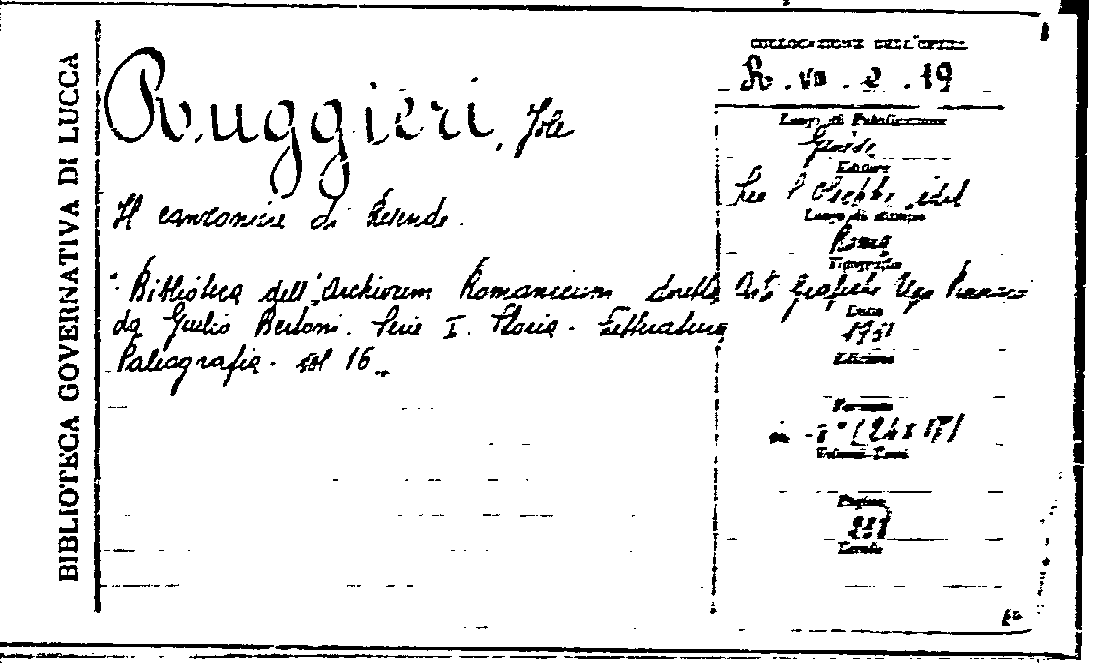 BIBLIOTECA GOVERNATIVA DI LUCCA
Ruggieri, Jole
Il canzoniere di Resende.
"Biblioteca dell'Archivum Romanicum diretta
da Giulio Bertoni. Serie I. Storia - Letteratura
Paleografia - vol 16
COLLOCAZIONE DELL'OPERA
R. VIII. 2. 19
Luogo di Pubblicazione
Editore
Leo S Olschki edit
Luogo di stampa
Roma
Tipografia
Arti Grafiche Ugo
Data
1931
Edizione
Formato
in -8° (24x17)
Volumi-Tomi
Pagine
Tavole